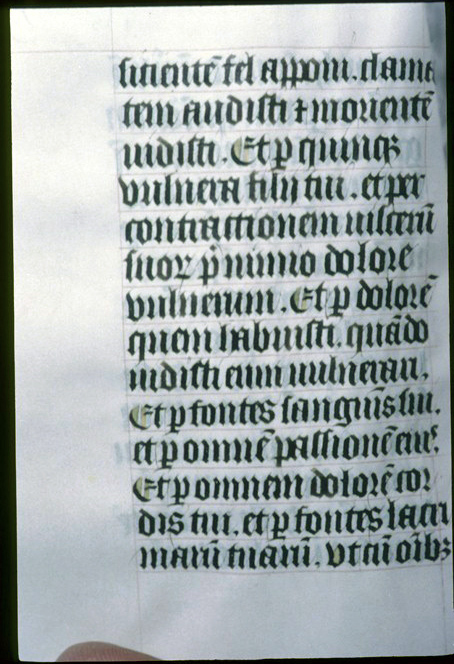 sitientē fel apponi. clama
tem audisti ⁊ morientē
uidisti. Et ꝑ quinqꝫ
vulnera filij tui. et per
contractionem uiscerū
suoꝝ p̄ nimio dolore
vulnerum. Et ꝑ dolorē
quem habuisti. quādo
uidisti eum uulnerari.
Et ꝑ fontes sanguīs sui.
et ꝑ omnē passionē eius.
Et ꝑ omnem dolorē cor
dis tui. et ꝑ fontes lacri
marū tuarū. vt cū oībꝫ